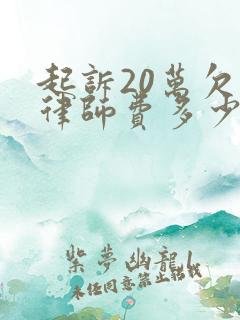 起訴20萬欠
律師費多少
紫夢幽龍1
未任同意禁止轉載